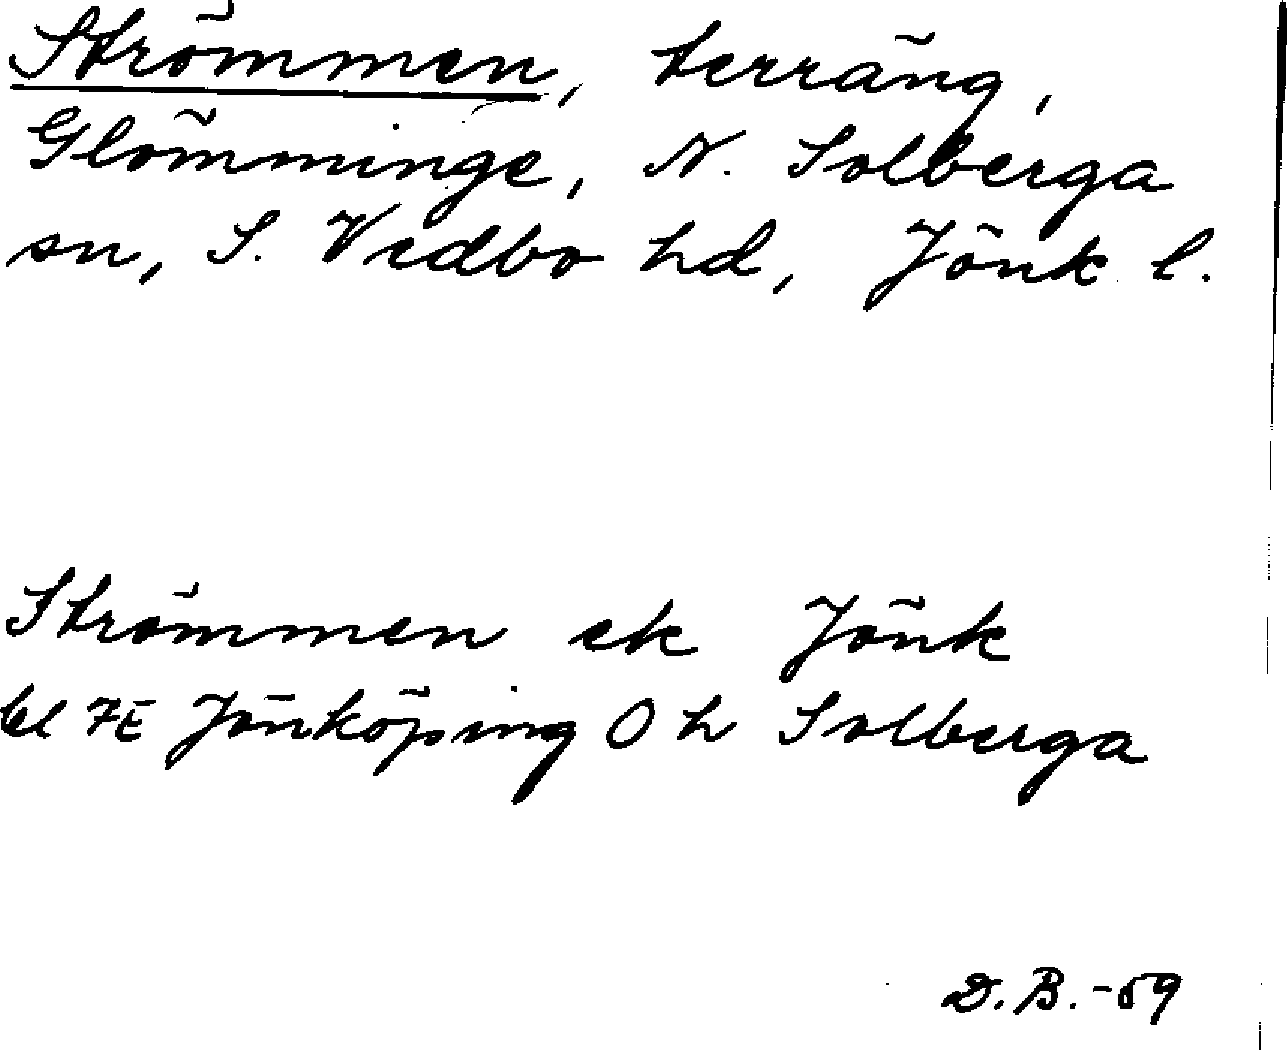 Strömmen, terräng,
Glömminge, N. Solberga
sn, S. Vedbo hd, Jönk l.
Strömmen ek Jönk
bl 7E Jönköping O h Solberga
D.B.-59